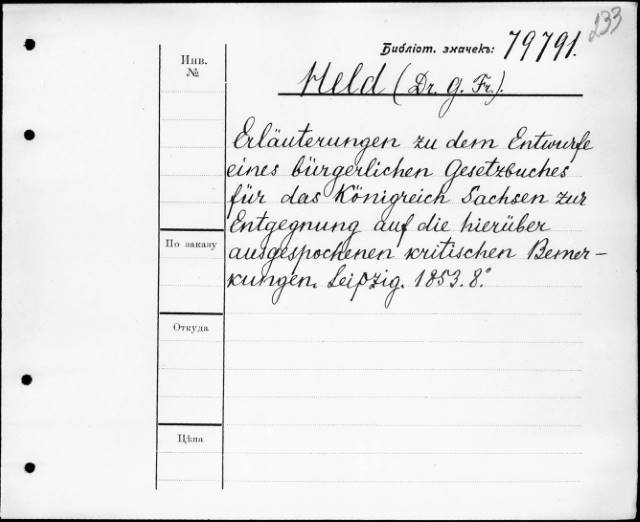 233
Библіот. значекъ: 79791.
Инв.
№
Held (Dr. G. Fr.).
Erläuterungen zu dem Entwurfe
eines bürgerlichen Gesetzbuches
für das Königreich Sachsen zur
Entgegnung auf die hierüber
По заказу
ausgespochenen kritischen Bemer-
kungen. Leipzig. 1853. 8.°
Откуда
Цѣна